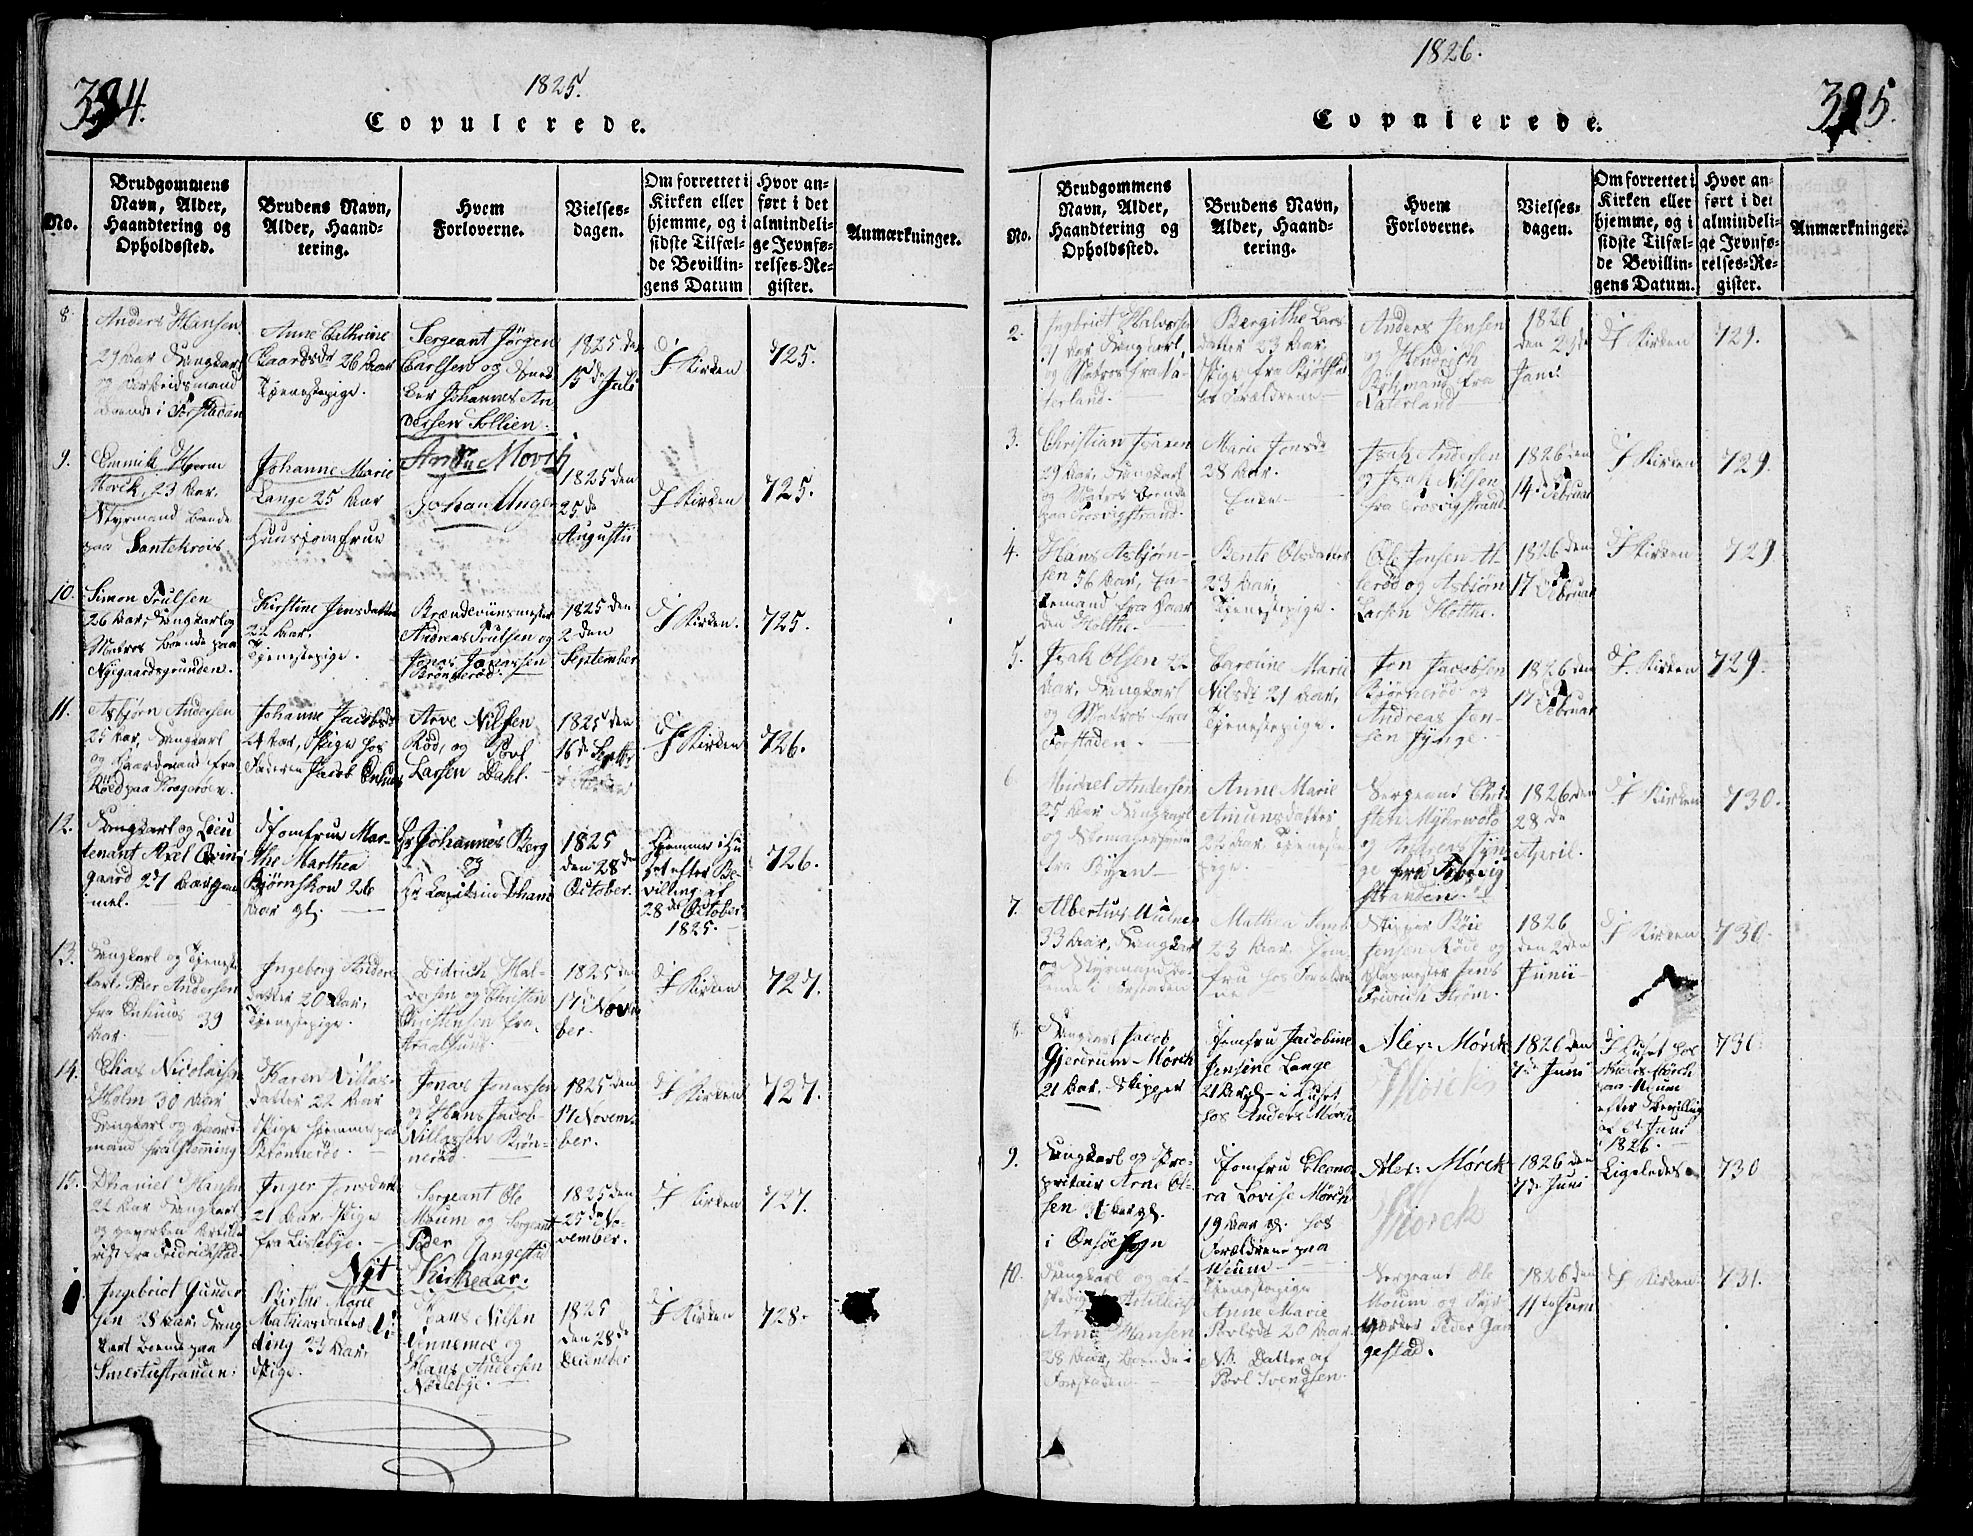 394.
1825.
Copulerede.
No.
Brudgommens Navn, Alder, Haandtering og Opholdssted.
Brudens Navn, Alder, Haandtering.
Hvem Forloverne.
Vielses-dagen.
Om forrettet i Kirken eller hjemme, og i sidste Tilfælde Bevillingens Datum
Hvor anført i det almindelige Jevnførelses-Register.
Anmærkninger.
8.
Anders Hansen
29 Aar Ungkarl
og Arbeidsmand
boende i Forstaden
Anne Cathrine
26 Aar
Tjenestepige.
Sergeant Jörgen
Carlsen og
Johannes An
dersen Sollien.
1825 den
15 de Juli
I Kirken
725.
9.
23 Aar.
Styrmand boende
paa
Johanne Marie
Lange 25 Aar
Huusjomfrue
Johan Unger
1825 den
25 de
Augustii
I Kirken
725.
10.
Simon Trulsen
26 Aar, Ungkarl og
Matros boende paa
Nygaardsgrunden.
Kirstine Jensdatter
22 Aar.
Tjenestepige.
Brændeviinsmester
Andreas Trulsen og
Jonas Jonassen
Brönneröd.
1825 den
2 den
September
I Kirken.
725.
11.
Asbjørn Andersen
25 Aar, Ungkarl
og Gaardmand fra
Röed paa Kragerøen.
Johanne Jacobsdr
24 Aar, Pige hos
Faderen Jacob
Arve Nilsen
Röd, og Povl
Larsen Dahl.
1825 den
16 de Septbr
I Kirken
726.
12.
Ungkarl og Lieu
tenant Axel
gaard 27 Aar gam
mel.
Jomfrue Mar-
the Marthea
Bjørnskow 26
Aar gl.
Hr Johannes Berg
og
Hr Capitain Thane
1825
den 28 de
October.
Hjemme i Hu
set efter Be
villing af
28 de October
1825.
726.
13.
Ungkarl og Tjeneste
karl Peer Andersen
39
Aar.
Ingeborg Anders
datter 20 Aar,
Tjenestepige.
Didrich Hal-
vorsen og Christen
Christensen fra
1825 den
17 de Novem
ber.
I Kirken
727.
14.
Elias Nicolaisen
Holm 30 Aar
Ungkarl og Gaard
mand
Karen Nillas-
datter 22 Aar
Pige hjemme paa
Brönneröd.
Jonas Jonassen
og Hans Jacob
Nillassen Brön-
neröd.
1825 den
17 Novem-
ber.
I Kirken
727.
15.
Dhaniel Hansen
22 Aar Ungkarl
og
fra Fredrichstad.
Inger Jensdatter
21 Aar. Pige
fra Lislebye.
Sergeant Ole
Moum og Sergeant
Peder Gangestad
1825 den
25 de No
vember.
I Kirken
727.
Nyt Kirkeaar.
1.
Ingebrict Gunder
sen 28 Aar, Ung
karl boende paa
Smertustranden.
Birthe Marie
Mathiasdatter
23 Aar.
Pige.
Hans Nilsen
og
Hans Andersen
Nøklebye.
1825
den 28 de
December
I Kirken
728.
1826.
395.
Copulerede.
No.
Brudgommens Navn, Alder, Haandtering og Opholdssted.
Brudens Navn, Alder, Haandtering.
Hvem Forloverne.
Vielses-dagen.
Om forrettet i Kirken eller hjemme, og i sidste Tilfælde Bevillingens Datum.
Hvor anført i det almindelige Jevnførelses-Register.
Anmærkninger.
2.
Ingbrict Halvorsen
Aar Ungkarl,
og Matros fra Va-
terland.
Bergithe Lars
datter 23 Aar.
Pige fra
hos Forældrene
Anders Jensen
og Hendrich
fra
Vaterland
1826
den 29 de
Jani
I Kirken
729.
3.
Christian
29 Aar, Ungkarl
og Matros boende
paa Trosvigstrand.
Marie Jonsdr
28 Aar.
Enke
Isak Andersen
og Isak Nilsen
fra Trosvigstrand
1826 den
14 Februar
I Kirken
729.
4.
Hans Asbjørn-
sen 56 Aar, En-
kemand fra Gaar
den Holthe.
Bente Olsdatter
23 Aar,
Tjenestepige.
Ole Jensen
og Asbjørn
Larsen Holthe.
1826 den
17 Februar
I Kirken
729
5.
Isak Olsen 22
Aar, Ungkarl
og Matros fra
Forstaden.
Caroline Marie
Nilsdr 21 Aar,
Tjenestepige.
Jon Jacobsen
Bjørnerød og
Andreas Jen-
sen Jynge.
1826 den
17 Februar
I Kirken
729.
6
Michael Andersen
25 Aar Ungkarl
og Skomagersvend
fra Byen
Anne Marie
Amunsdatter
22 Aar Tjeneste
pige.
Sergeant Chri
sten
og Andreas Jyn
ge fra Trosvig
stranden.
1826 den
28 de
April.
I Kirken
730.
7.
Albertus
33 Aar, Ungkarl
og Styrmand bo-
ende i Forstaden
Mathea
23 Aar, Jom
fru hos Foræld
ne
Skipper Böie
Jensen Röed og
Jens
Fridrich Strøm.
1826
den 2 den
Junii
I Kirken
730.
8.
Ungkarl Jacob
Gjerdrum Mörck
21 Aar. Skipper
Jomfru Jacobine
Jensine Lange
21 Aar gl. i Huset
hos Anders Mörck
Alex: Mörck
Mörck
1826 den
7 de Juni
I Huset hos
Anders Mörch
paa Moum
efter Bevilling
af Juni
1826.
730.
9.
Ungkarl og Pro-
pritair Arne Ol-
sen Aar gl.
i Onsöe Sogn
Jomfru Eleono
ra Lovise Mörch
19 Aar gl. hos
Forældrene paa
Moum
Alex: Mörck
Mörck
1826 den
7 de Juni
Ligeledes
730
10.
Ungkarl og af-
Artillerist
Arne Hansen
28 Aar, boende i
Forstaden
Tjenestepige
Anne Marie
Povlsdr 20 Aar.
N.B. Datter af
Povl Svendsen.
Sergeant Ole
Moum og
Peder Gan
gestad.
1826 den
11 te Juni
I Kirken
731.